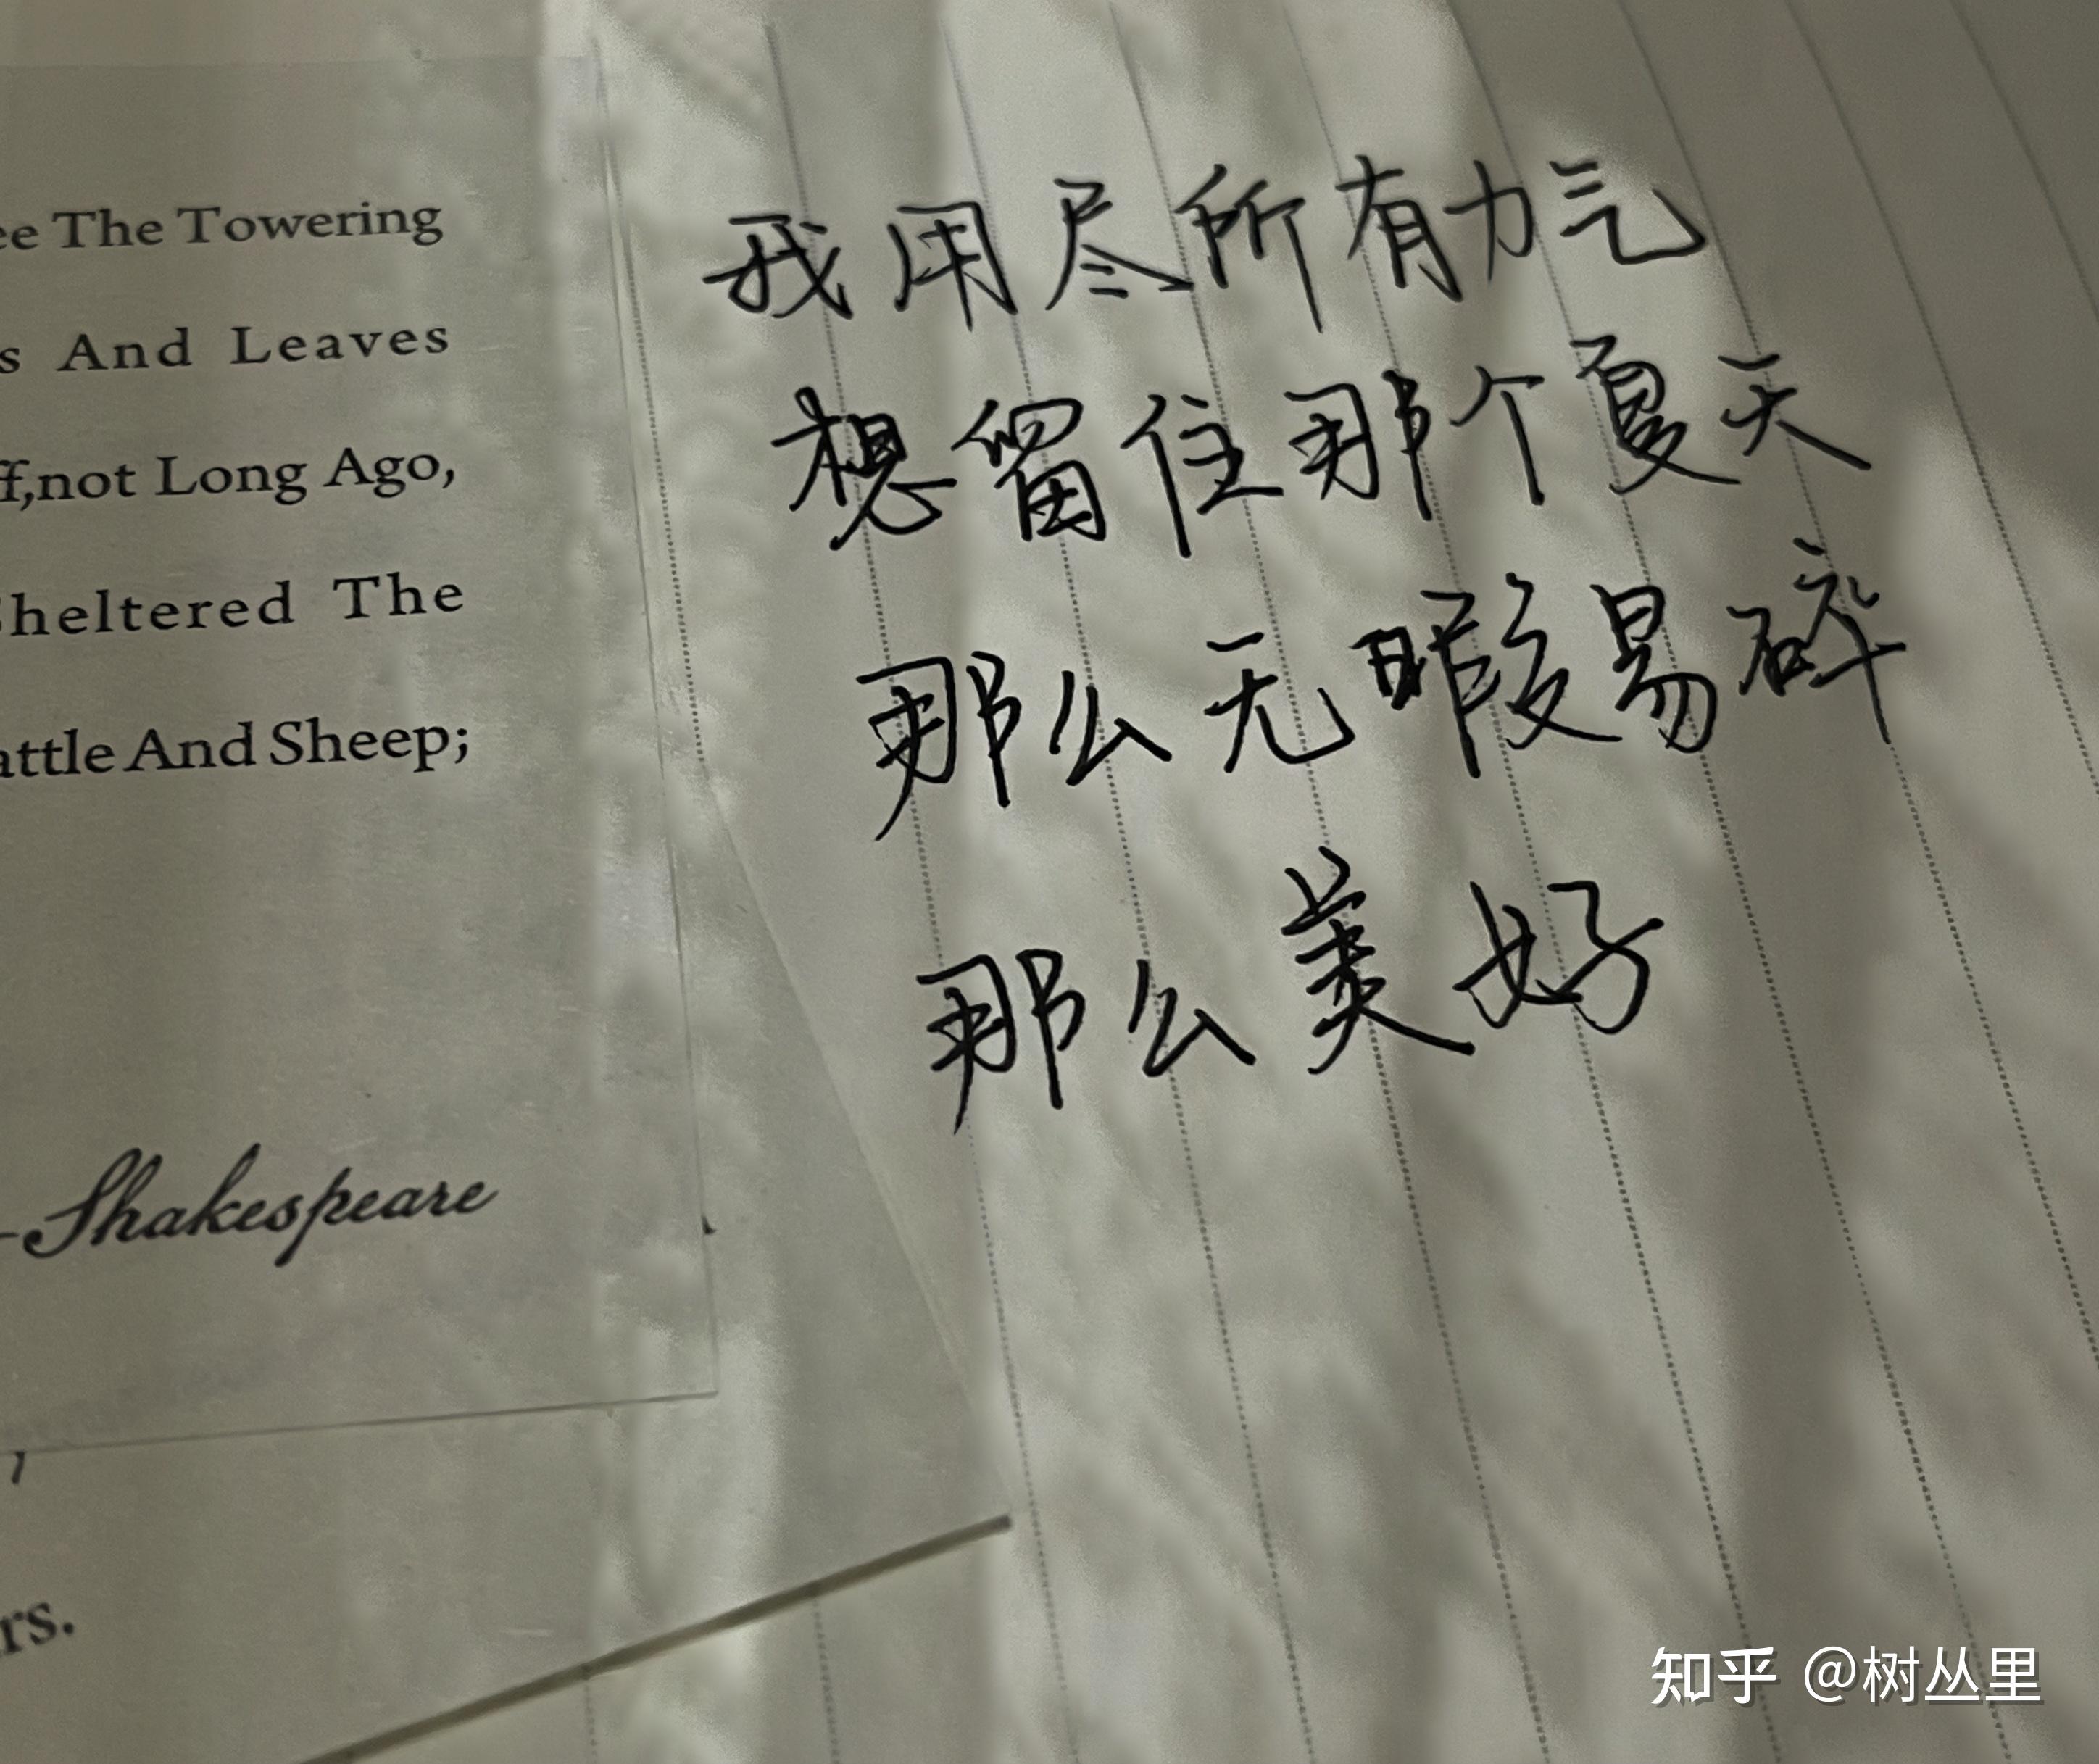 ee The Towering
s And Leaves
f,not Long Ago,
heltered The
attle And Sheep;
-Shakespeare
rs.
我用尽所有力气
想留住那个夏天
那么无暇易碎
那么美好
知乎 @树丛里